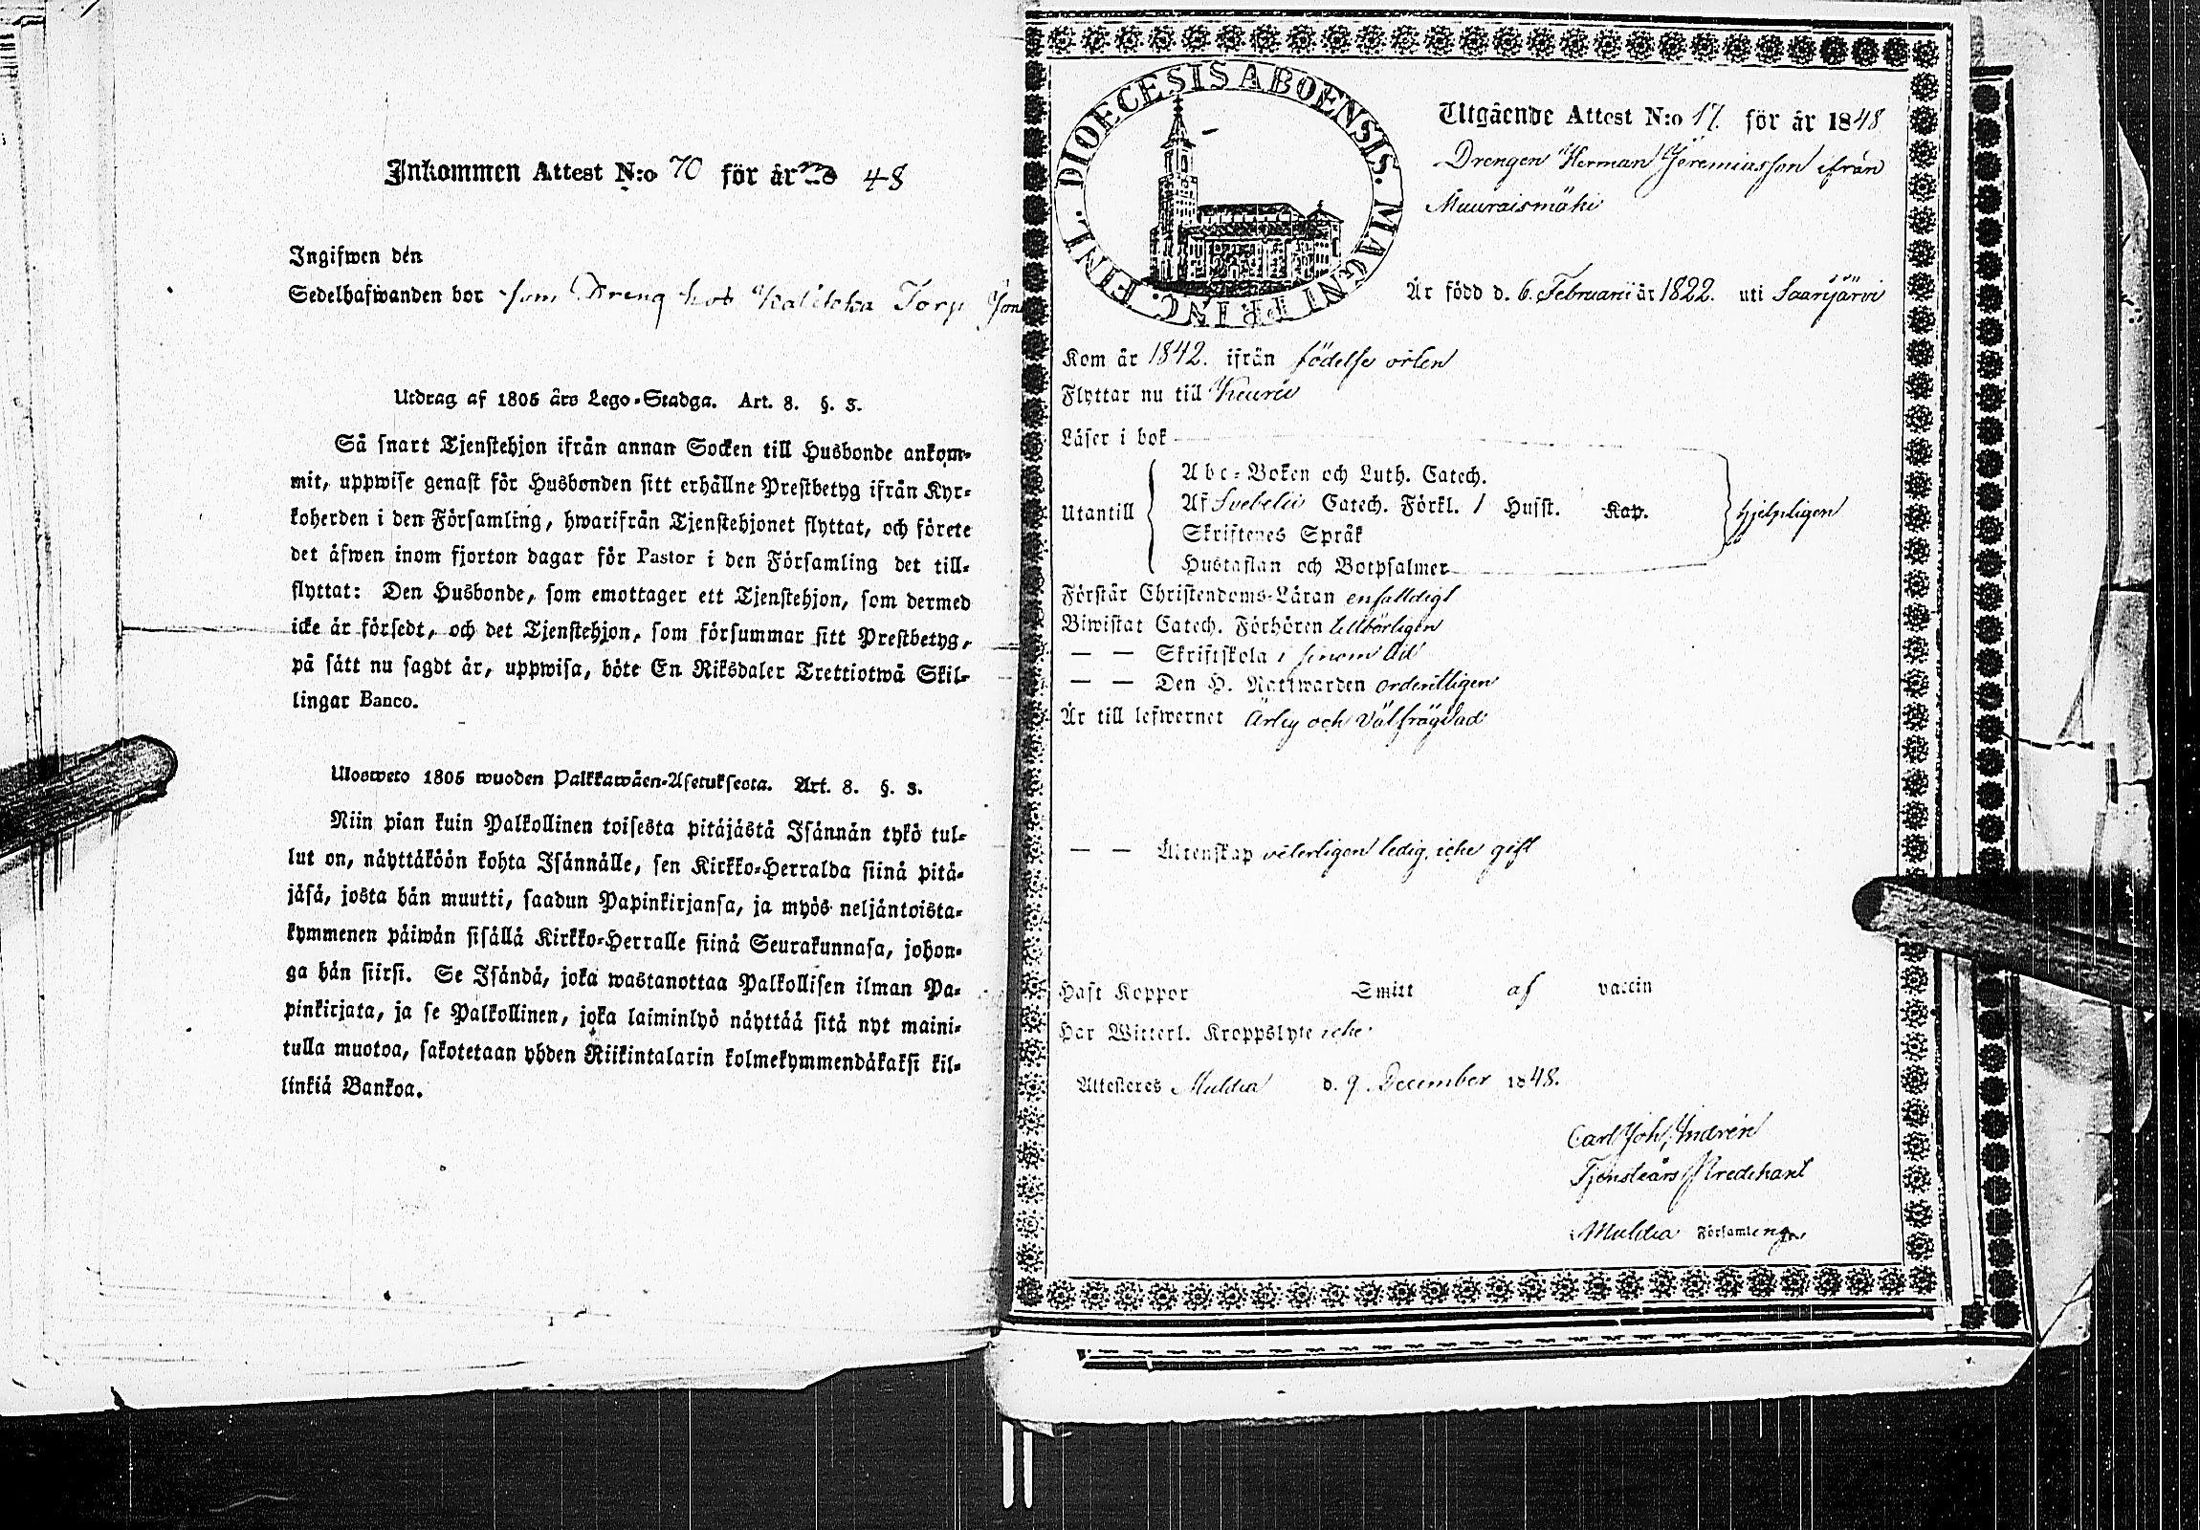 Inkommen Attest N:o 70 för år 48
Ingifwen den
Sedelhafwanden bor som Dreng hos Torp
Utdrag af 1805 års Lego-Stadga. Art. 8. §. 3.
Så snart Tjenstehjon ifrån annan Socken till Husbonde ankom-
mit, uppwise genast för Husbonden sitt erhållne Prestbetyg ifrån Kyr-
koherden i den Församling, hwarifrån Tjenstehjonet flyttat, och förete
det äfwen inom fjorton dagar för Pastor i den Församling det till-
flyttat: Den Husbonde, som emottager ett Tjenstehjon, som dermed
icke är försedt, och det Tjenstehjon, som försummar sitt Prestbetyg,
på sätt nu sagdt är, uppwisa, böte En Riksdaler Trettiotwå Skil-
lingar Banco.
Ulosweto 1805 wuoden Palkkawäen-Asetuksesta. Art. 8. §. 3.
Niin pian kuin Palkollinen toisesta pitäjästä Isännän tykö tul-
lut on, näyttäköön kohta Isännälle, sen Kirkko-Herralda siinä pitä-
jäsä, josta hän muutti, saadun Papinkirjansa, ja myös neljäntoista-
kymmenen päiwän sisällä Kirkko-Herralle siinä Seurakunnasa, johon-
ga hän siirsi. Se Isändä, joka wastanottaa Palkollisen ilman Pa-
pinkirjata, ja se Palkollinen, joka laiminlyö näyttää sitä nyt maini-
tulla muotoa, sakotetaan yhden Riikintalarin kolmekymmendäkaksi kil-
linkiä Bankoa.
DIOECESIS ABOENSIS. MAGNI PRINC. FINL.
Utgående Attest N:o 17. för år 1848
Drengen Herman Jeremiasson ifrån
Muuraismäki
Är född d. 6. Februarii år 1822. uti Saarijärvi
Kom år 1842. ifrån födelse orten
Flyttar nu till Keuru
Läser i bok
Abc-Boken och Luth. Catech.
Utantill Af Svebelii Catech. Förkl. / Husst. Kap. hjelpligen
Skriftenes Språk
Hustaflan och Botpsalmer
Förstår Christendoms-Läran enfaldigt
Biwistat Catech. Förhören tillbörligen
— — Skriftskola i sinom tid
— — Den H. Nattwarden ordentligen
Är till lefwernet ärlig och välfrägdad
— — Äktenskap veterligen ledig, icke gift
Haft Koppor Smitt af vaccin
Har Witterl. Kroppslyte icke
Attesteras Muldia d. 9 December 1848.
Carl Joh. Andrén
Tjensteårs Predikant
Muldia Församling